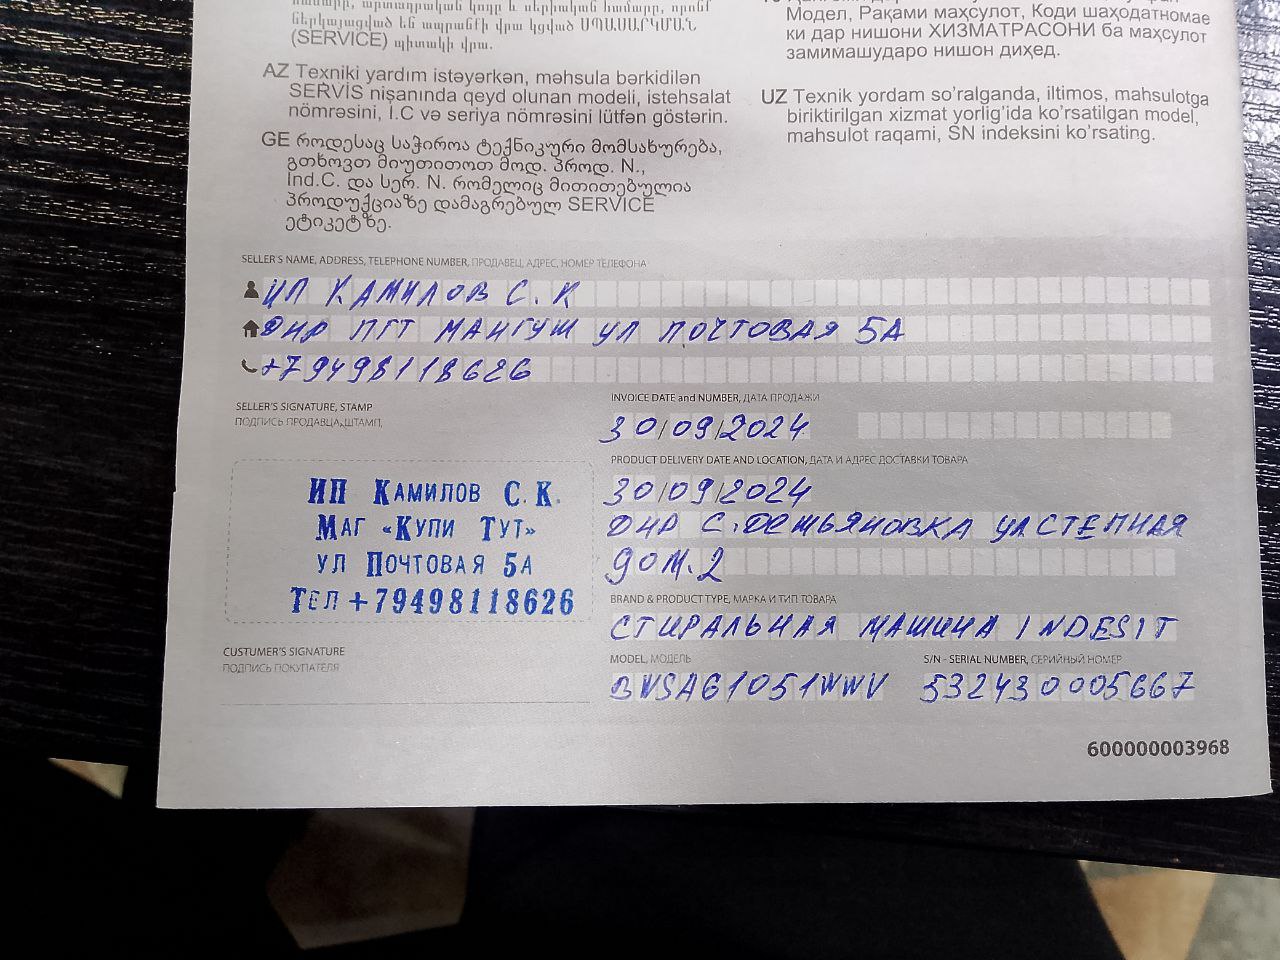 ներկայացված են ապրանքի վրա կցված ՍՊԱՍԱՐԿՄԱՆ
(SERVICE) պիտակի վրա.
AZ Texniki yardım istəyərkən, məhsula bərkidilən
SERVİS nişanında qeyd olunan modeli, istehsalat
nömrəsini, I.C və seriya nömrəsini lütfən göstərin.
GE როდესაც საჭიროა ტექნიკური მომსახურება,
გთხოვთ მიუთითოთ მოდ. პროდ. N.,
Ind.C. და სერ. N. რომელიც მითითებულია
პროდუქციაზე დამაგრებულ SERVICE
ეტიკეტზე.
Модел, Рақами маҳсулот, Коди шаҳодатномае
ки дар нишони ХИЗМАТРАСОНИ ба маҳсулот
замимашударо нишон диҳед.
UZ Texnik yordam so’ralganda, iltimos, mahsulotga
biriktirilgan xizmat yorlig’ida ko’rsatilgan model,
mahsulot raqami, SN indeksini ko’rsating.
SELLER'S NAME, ADDRESS, TELEPHONE NUMBER, ПРОДАВЕЦ, АДРЕС, НОМЕР ТЕЛЕФОНА
ИП КАМИЛОВ С.К
ДНР ПГТ МАНГУШ УЛ ПОЧТОВАЯ 5А
+79498118626
SELLER'S SIGNATURE, STAMP
ПОДПИСЬ ПРОДАВЦА, ШТАМП,
ИП КАМИЛОВ С.К.
МАГ «КУПИ ТУТ»
УЛ ПОЧТОВАЯ 5А
ТЕЛ +79498118626
CUSTUMER'S SIGNATURE
ПОДПИСЬ ПОКУПАТЕЛЯ
INVOICE DATE and NUMBER, ДАТА ПРОДАЖИ
30/09/2024
PRODUCT DELIVERY DATE AND LOCATION, ДАТА И АДРЕС ДОСТАВКИ ТОВАРА
30/09/2024
ДНР С.ДЕМЬЯНОВКА УЛ СТЕПНАЯ
ДОМ.2
BRAND & PRODUCT TYPE, МАРКА И ТИП ТОВАРА
СТИРАЛЬНАЯ МАШИНА INDESIT
MODEL, МОДЕЛЬ
BWSA61051WWV
S/N - SERIAL NUMBER, СЕРИЙНЫЙ НОМЕР
532430005667
600000003968